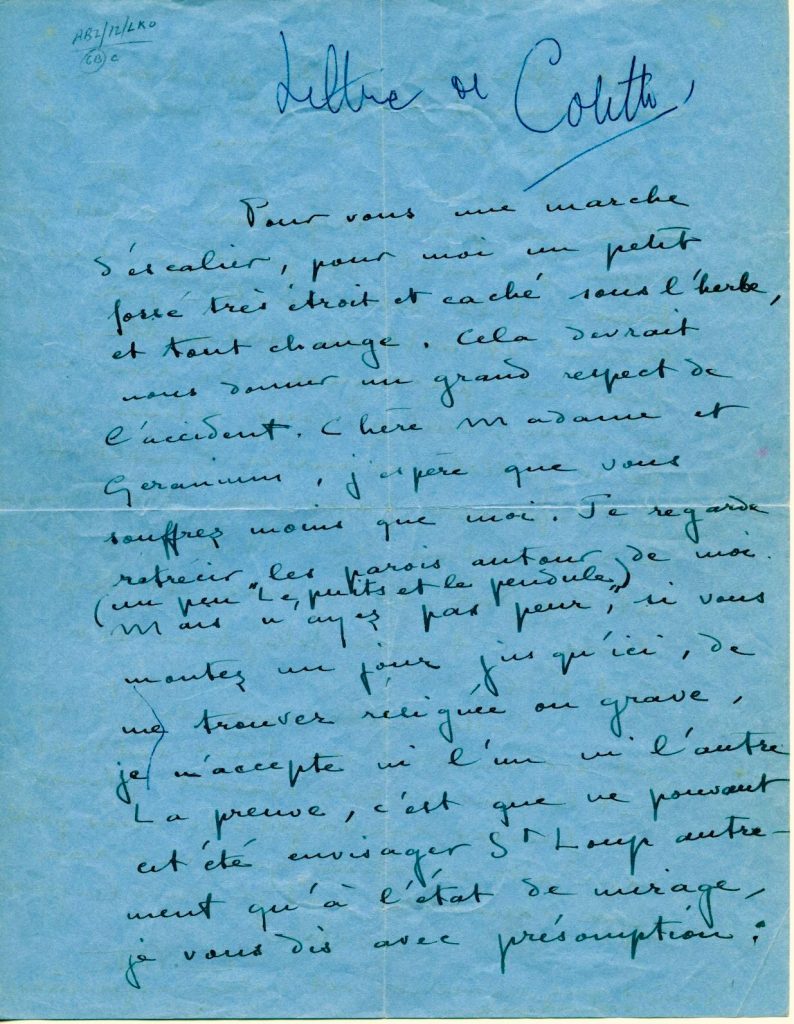 AB2/12/LKO
EB C
Lettre de Colette
Pour vous une marche
d'escalier, pour moi un petit
fossé très étroit et caché sous l'herbe,
et tout change. Cela devrait
nous donner un grand respect de
l'accident. Chère Madame et
Geranium, j'espère que vous
souffrez moins que moi. Je regarde
rétrécir les parois autour de moi.
(un peu "Le puits et le pendule")
Mais n'ayez pas peur, si vous
montez un jour jusqu'ici, de
me trouver résignée ou grave,
je n'accepte ni l'un ni l'autre
La preuve, c'est que ne pouvant
cet été envisager St Loup autre-
ment qu'à l'état de mirage,
je vous dis avec présomption :